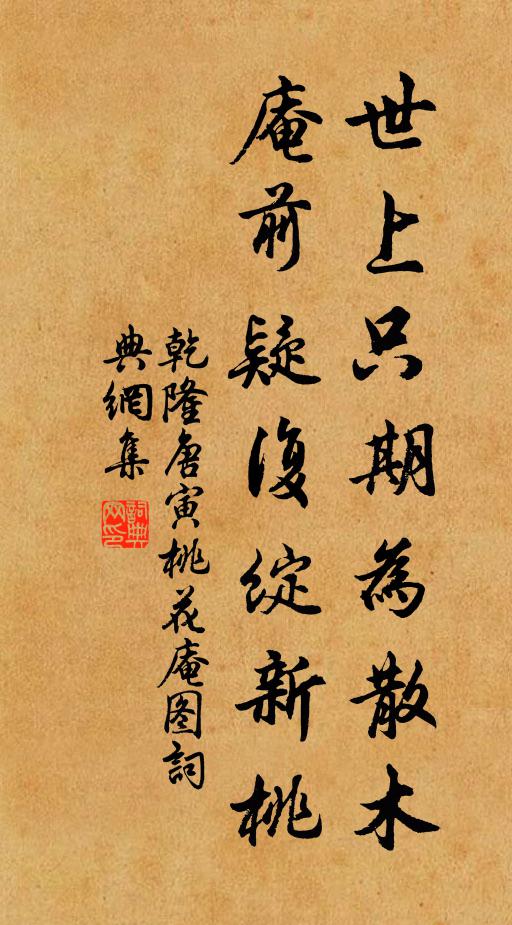 世上只期為散木
庵前疑復綻新桃
乾隆唐寅桃花庵图詞
典網集
詞典
网印